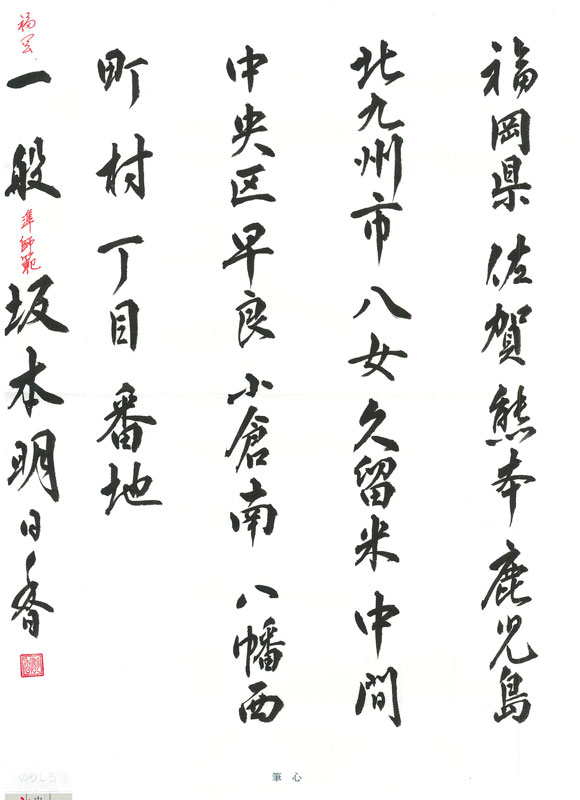 福岡県 佐賀 熊本 鹿児島
北九州市 八女 久留米 中間
中央区 早良 小倉南 八幡西
町村 丁目 番地
福岡
一般 準師範 坂本明日香
筆心
のりしろ